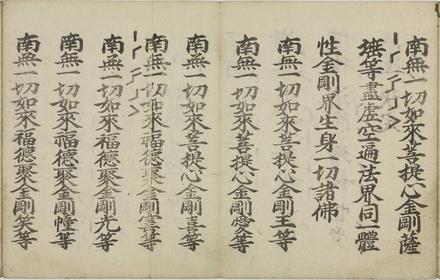 南無一切如來菩提心金剛薩
埵等盡虛空遍法界同一體
性金剛界生身一切諸佛
南無一切如來菩提心金剛王等
南無一切如來菩提心金剛愛等
南無一切如來菩提心金剛喜等
南無一切如來福德聚金剛寶等
南無一切如來福德聚金剛光等
南無一切如來福德聚金剛幢等
南無一切如來福德聚金剛笑等